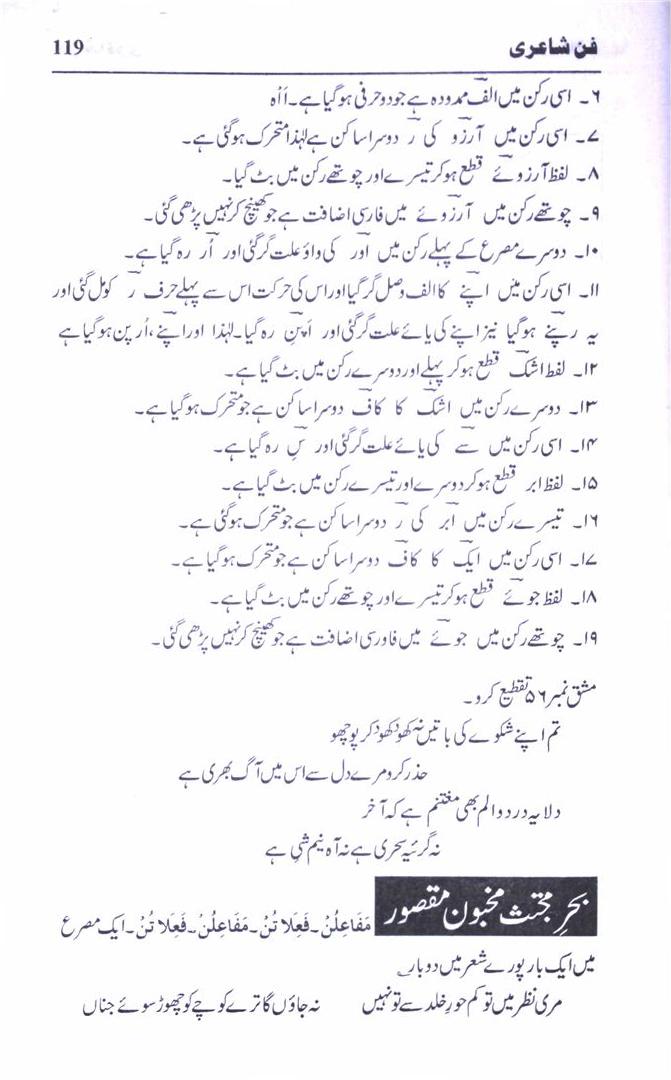 فن شاعری 119
۶۔ اسی رکن میں الف ممدودہ ہے جو دو حرفی ہو گیا ہے۔ ااہ
۷۔ اسی رکن میں آرزو کی ر دوسرا ساکن ہے لہٰذا متحرک ہو گئی ہے۔
۸۔ لفظ آرزوئے قطع ہو کر تیسرے اور چوتھے رکن میں بٹ گیا۔
۹۔ چوتھے رکن میں آرزوئے میں فارسی اضافت ہے جو کھینچ کر نہیں پڑھی گئی۔
۱۰۔ دوسرے مصرع کے پہلے رکن میں اور کی واؤ علت گر گئی اور اُر رہ گیا ہے۔
۱۱۔ اسی رکن میں اپنے کا الف وصل گر گیا اور اس کی حرکت اس سے پہلے حرف ر کو مل گئی اور
یہ رپنے ہو گیا نیز اپنے کی یائے علت گر گئی اور اَپنِ رہ گیا۔ لہٰذا اور اپنے، اُرپن ہو گیا ہے
۱۲۔ لفظ اشک قطع ہو کر پہلے اور دوسرے رکن میں بٹ گیا ہے۔
۱۳۔ دوسرے رکن میں اشک کا کاف دوسرا ساکن ہے جو متحرک ہو گیا ہے۔
۱۴۔ اسی رکن میں سے کی یائے علت گر گئی اور سِ رہ گیا ہے۔
۱۵۔ لفظ ابر قطع ہو کر دوسرے اور تیسرے رکن میں بٹ گیا ہے۔
۱۶۔ تیسرے رکن میں ابر کی ر دوسرا ساکن ہے جو متحرک ہو گئی ہے۔
۱۷۔ اسی رکن میں ایک کا کاف دوسرا ساکن ہے جو متحرک ہو گیا ہے۔
۱۸۔ لفظ جوئے قطع ہو کر تیسرے اور چوتھے رکن میں بٹ گیا ہے۔
۱۹۔ چوتھے رکن میں جوئے میں فاورسی اضافت ہے جو کھینچ کر نہیں پڑھی گئی۔
مشق نمبر ۵۶ تقطیع کرو۔
تم اپنے شکوے کی باتیں نہ کھود کھود کر پوچھو
حذر کرو مرے دل سے اس میں آگ بھری ہے
دلا یہ درد و الم بھی مغتنم ہے کہ آخر
نہ گریۂ سحری ہے نہ آہ نیم شبی ہے
بحرِ مجتث مخبون مقصور مَفَاعِلُنْ۔ فَعِلَاتُنْ۔ مَفَاعِلُنْ۔ فَعِلَاتُنْ۔ ایک مصرع
میں ایک بار پورے شعر میں دو بار۔
مری نظر میں تو کم حورِ خلد سے تو نہیں نہ جاؤں گا ترے کوچے کو چھوڑ سوئے جناں